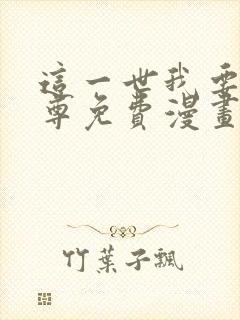 這一世我要
尊免費漫畫
竹葉子飄